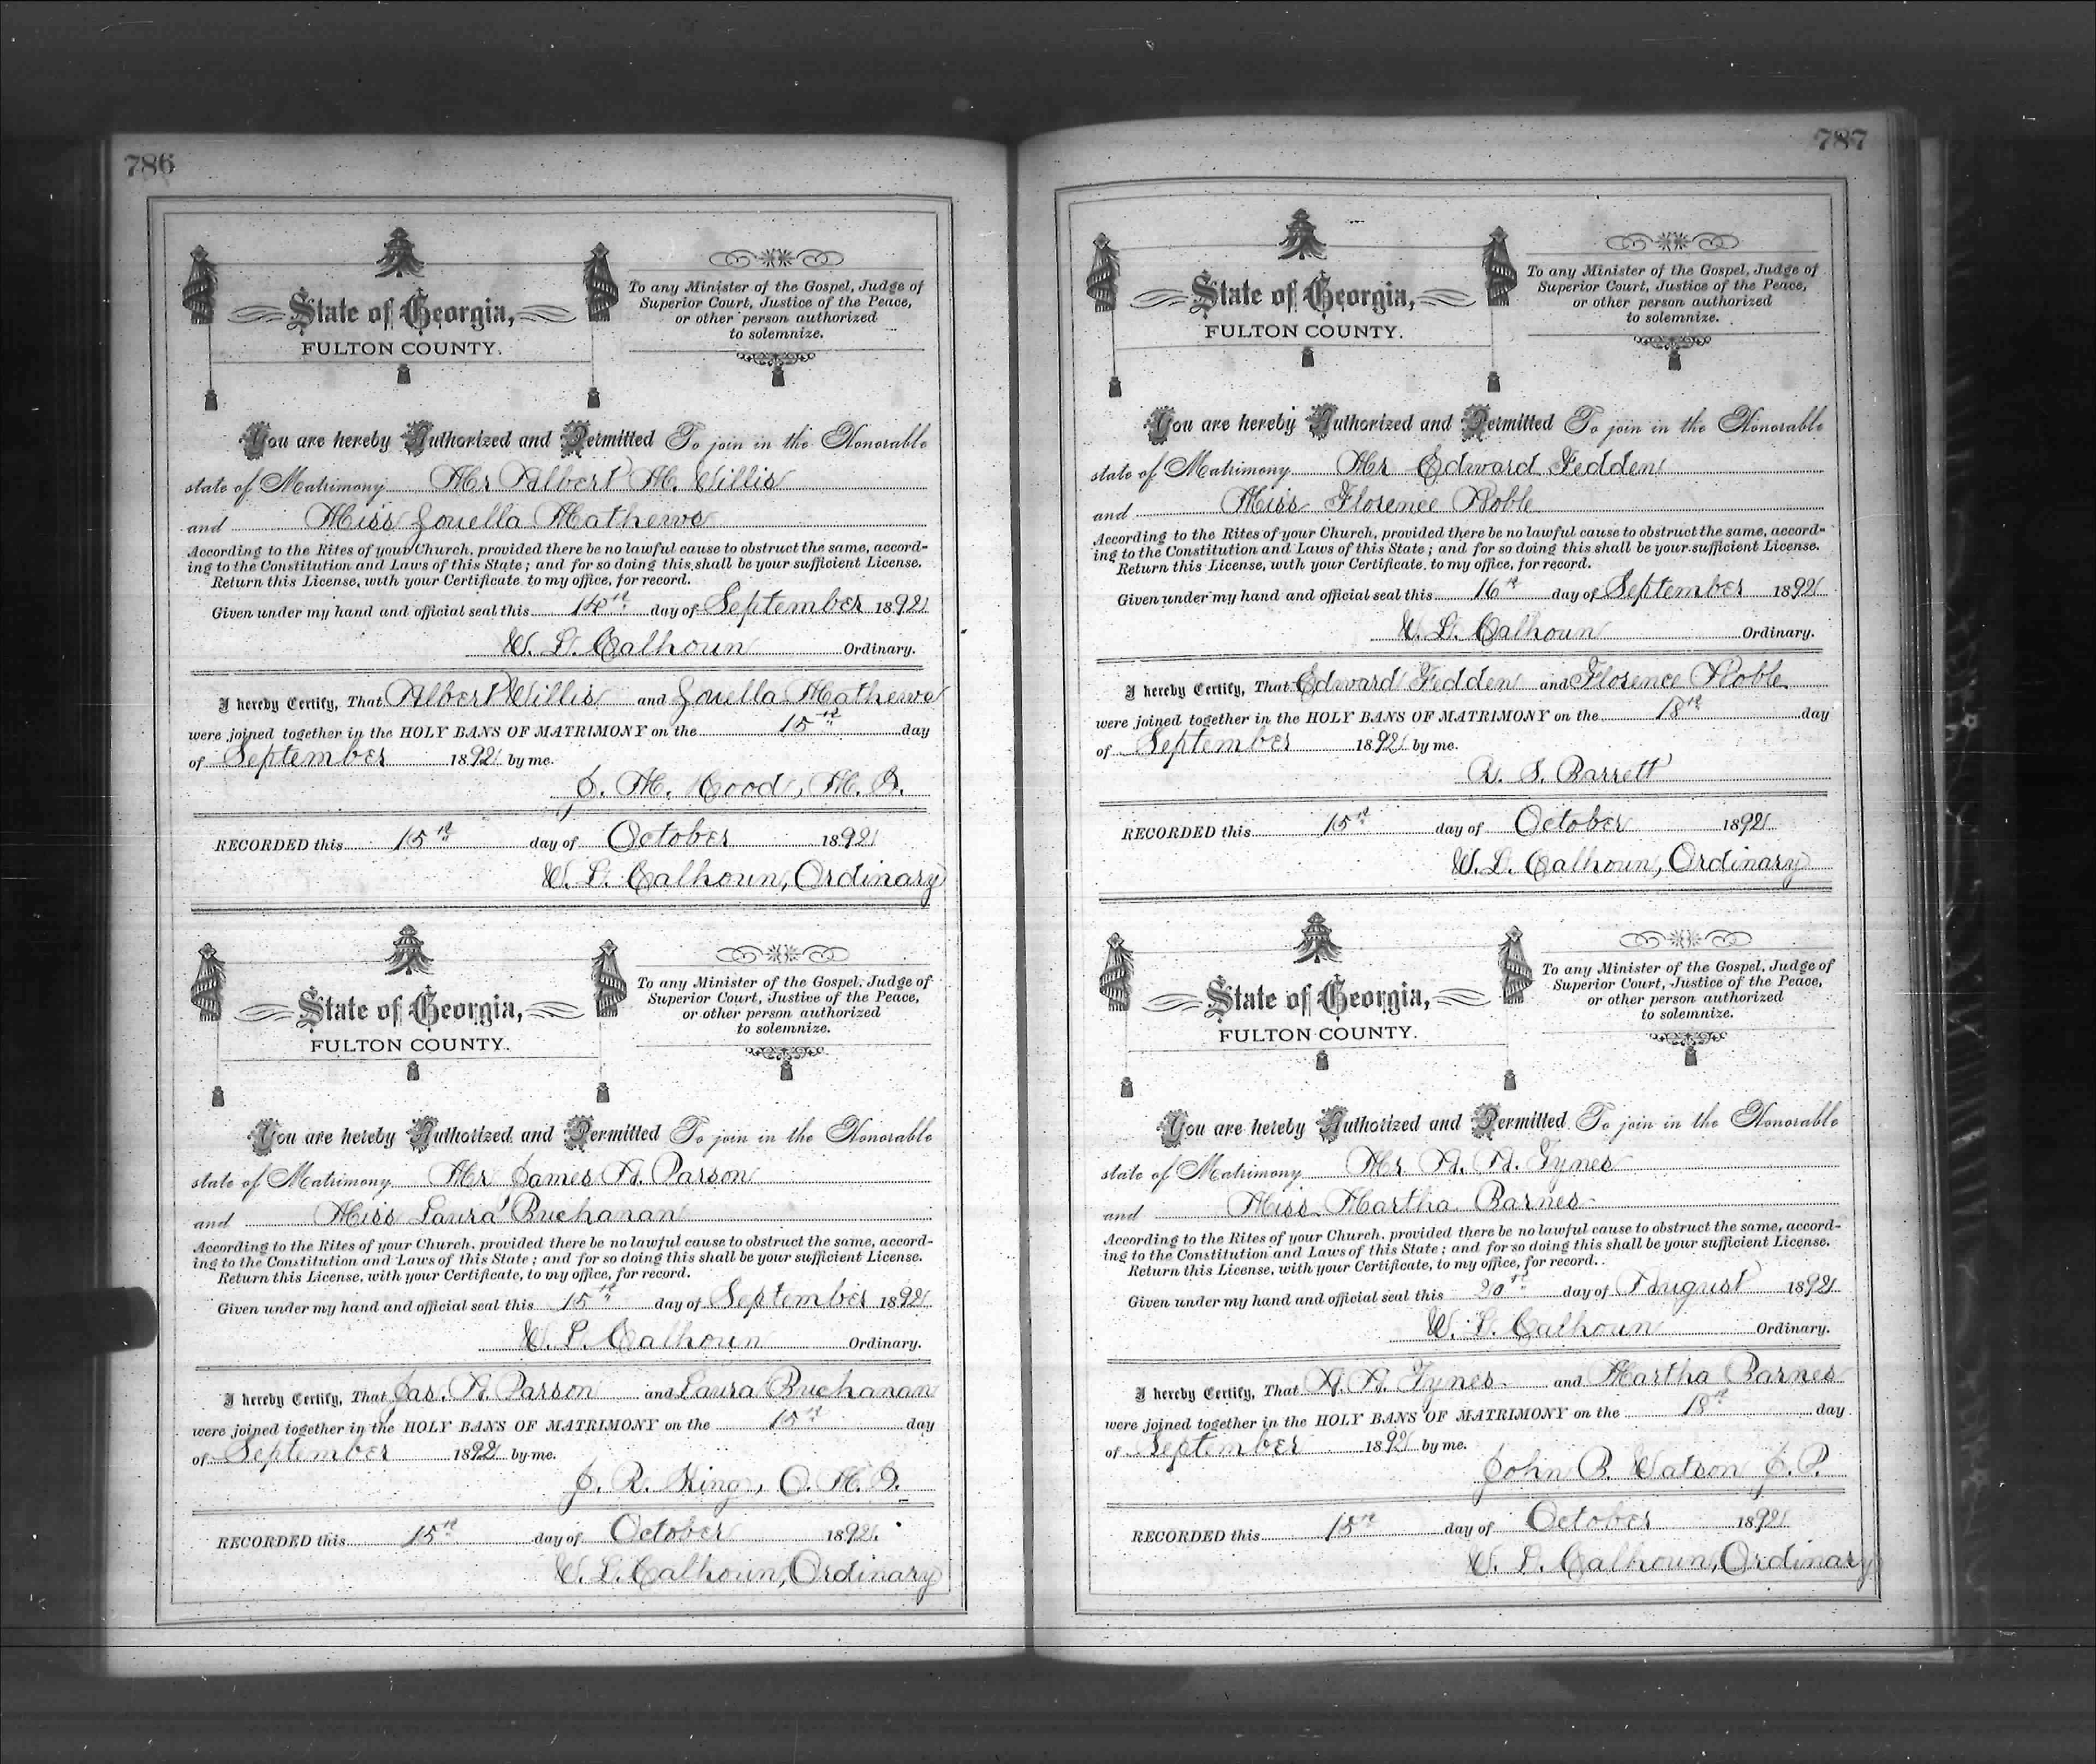 786
State of Georgia,
FULTON COUNTY.
To any Minister of the Gospel, Judge of
Superior Court, Justice of the Peace,
or other person authorized
to solemnize.
You are hereby Authorized and Permitted To join in the Honorable
state of Matrimony Mr Albert M. Willis
and Miss Louella Mathews
According to the Rites of your Church, provided there be no lawful cause to obstruct the same, accord-
ing to the Constitution and Laws of this State; and for so doing this shall be your sufficient License.
Return this License, with your Certificate to my office, for record.
Given under my hand and official seal this 14th day of September 1892
W. L. Calhoun Ordinary.
I hereby Certify, That Albert Willis and Louella Mathews
were joined together in the HOLY BANS OF MATRIMONY on the 15th day
of September 1892 by me.
J. M. Wood, M. G.
RECORDED this 15th day of October 1892
W. L. Calhoun, Ordinary
State of Georgia,
FULTON COUNTY.
To any Minister of the Gospel, Judge of
Superior Court, Justice of the Peace,
or other person authorized
to solemnize.
You are hereby Authorized and Permitted To join in the Honorable
state of Matrimony Mr James A. Parson
and Miss Laura Buchanan
According to the Rites of your Church, provided there be no lawful cause to obstruct the same, accord-
ing to the Constitution and Laws of this State; and for so doing this shall be your sufficient License.
Return this License, with your Certificate, to my office, for record.
Given under my hand and official seal this 15th day of September 1892
W. L. Calhoun Ordinary.
I hereby Certify, That Jas. A. Parson and Laura Buchanan
were joined together in the HOLY BANS OF MATRIMONY on the 15th day
of September 1892 by me.
J. R. King, O. M. G.
RECORDED this 15th day of October 1892.
W. L. Calhoun, Ordinary
787
State of Georgia,
FULTON COUNTY.
To any Minister of the Gospel, Judge of
Superior Court, Justice of the Peace,
or other person authorized
to solemnize.
You are hereby Authorized and Permitted To join in the Honorable
state of Matrimony Mr Edward Fedden
and Miss Florence Noble
According to the Rites of your Church, provided there be no lawful cause to obstruct the same, accord-
ing to the Constitution and Laws of this State; and for so doing this shall be your sufficient License.
Return this License, with your Certificate, to my office, for record.
Given under my hand and official seal this 16th day of September 1892
W. L. Calhoun Ordinary.
I hereby Certify, That Edward Fedden and Florence Noble
were joined together in the HOLY BANS OF MATRIMONY on the 18th day
of September 1892 by me.
R. S. Barrett
RECORDED this 15th day of October 1892
W. L. Calhoun, Ordinary
State of Georgia,
FULTON COUNTY.
To any Minister of the Gospel, Judge of
Superior Court, Justice of the Peace,
or other person authorized
to solemnize.
You are hereby Authorized and Permitted To join in the Honorable
state of Matrimony Mr A. A. Tynes
and Miss Martha Barnes
According to the Rites of your Church, provided there be no lawful cause to obstruct the same, accord-
ing to the Constitution and Laws of this State; and for so doing this shall be your sufficient License.
Return this License, with your Certificate, to my office, for record.
Given under my hand and official seal this 20th day of August 1892
W. L. Calhoun Ordinary.
I hereby Certify, That A. A. Tynes and Martha Barnes
were joined together in the HOLY BANS OF MATRIMONY on the 18th day
of September 1892 by me.
John B. Watson J. P.
RECORDED this 15th day of October 1892
W. L. Calhoun, Ordinary